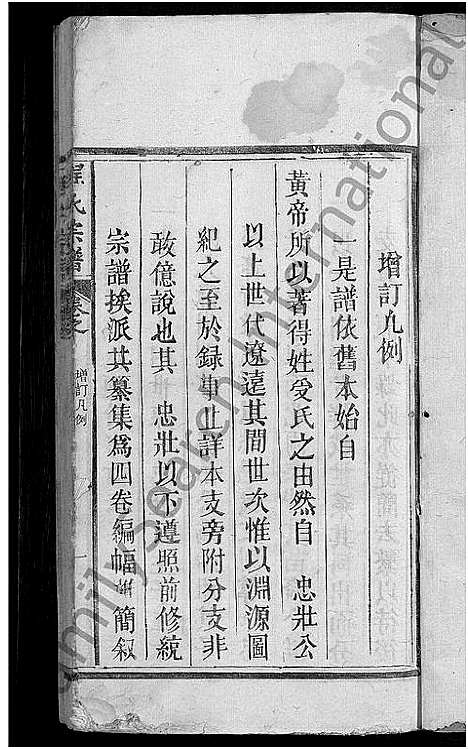 增訂凡例
一是譜依舊本始自
黃帝所以著得姓受氏之由然自 忠壯公
以上世代遼遠其間世次惟以淵源圖
紀之至於録事止詳本支旁附分支非
敢億說也其 忠壯以下遵照前修統
宗譜挨派共纂集為四卷編幅 簡叙
程氏宗譜 卷之
增訂凡例
一
FamilySearch International